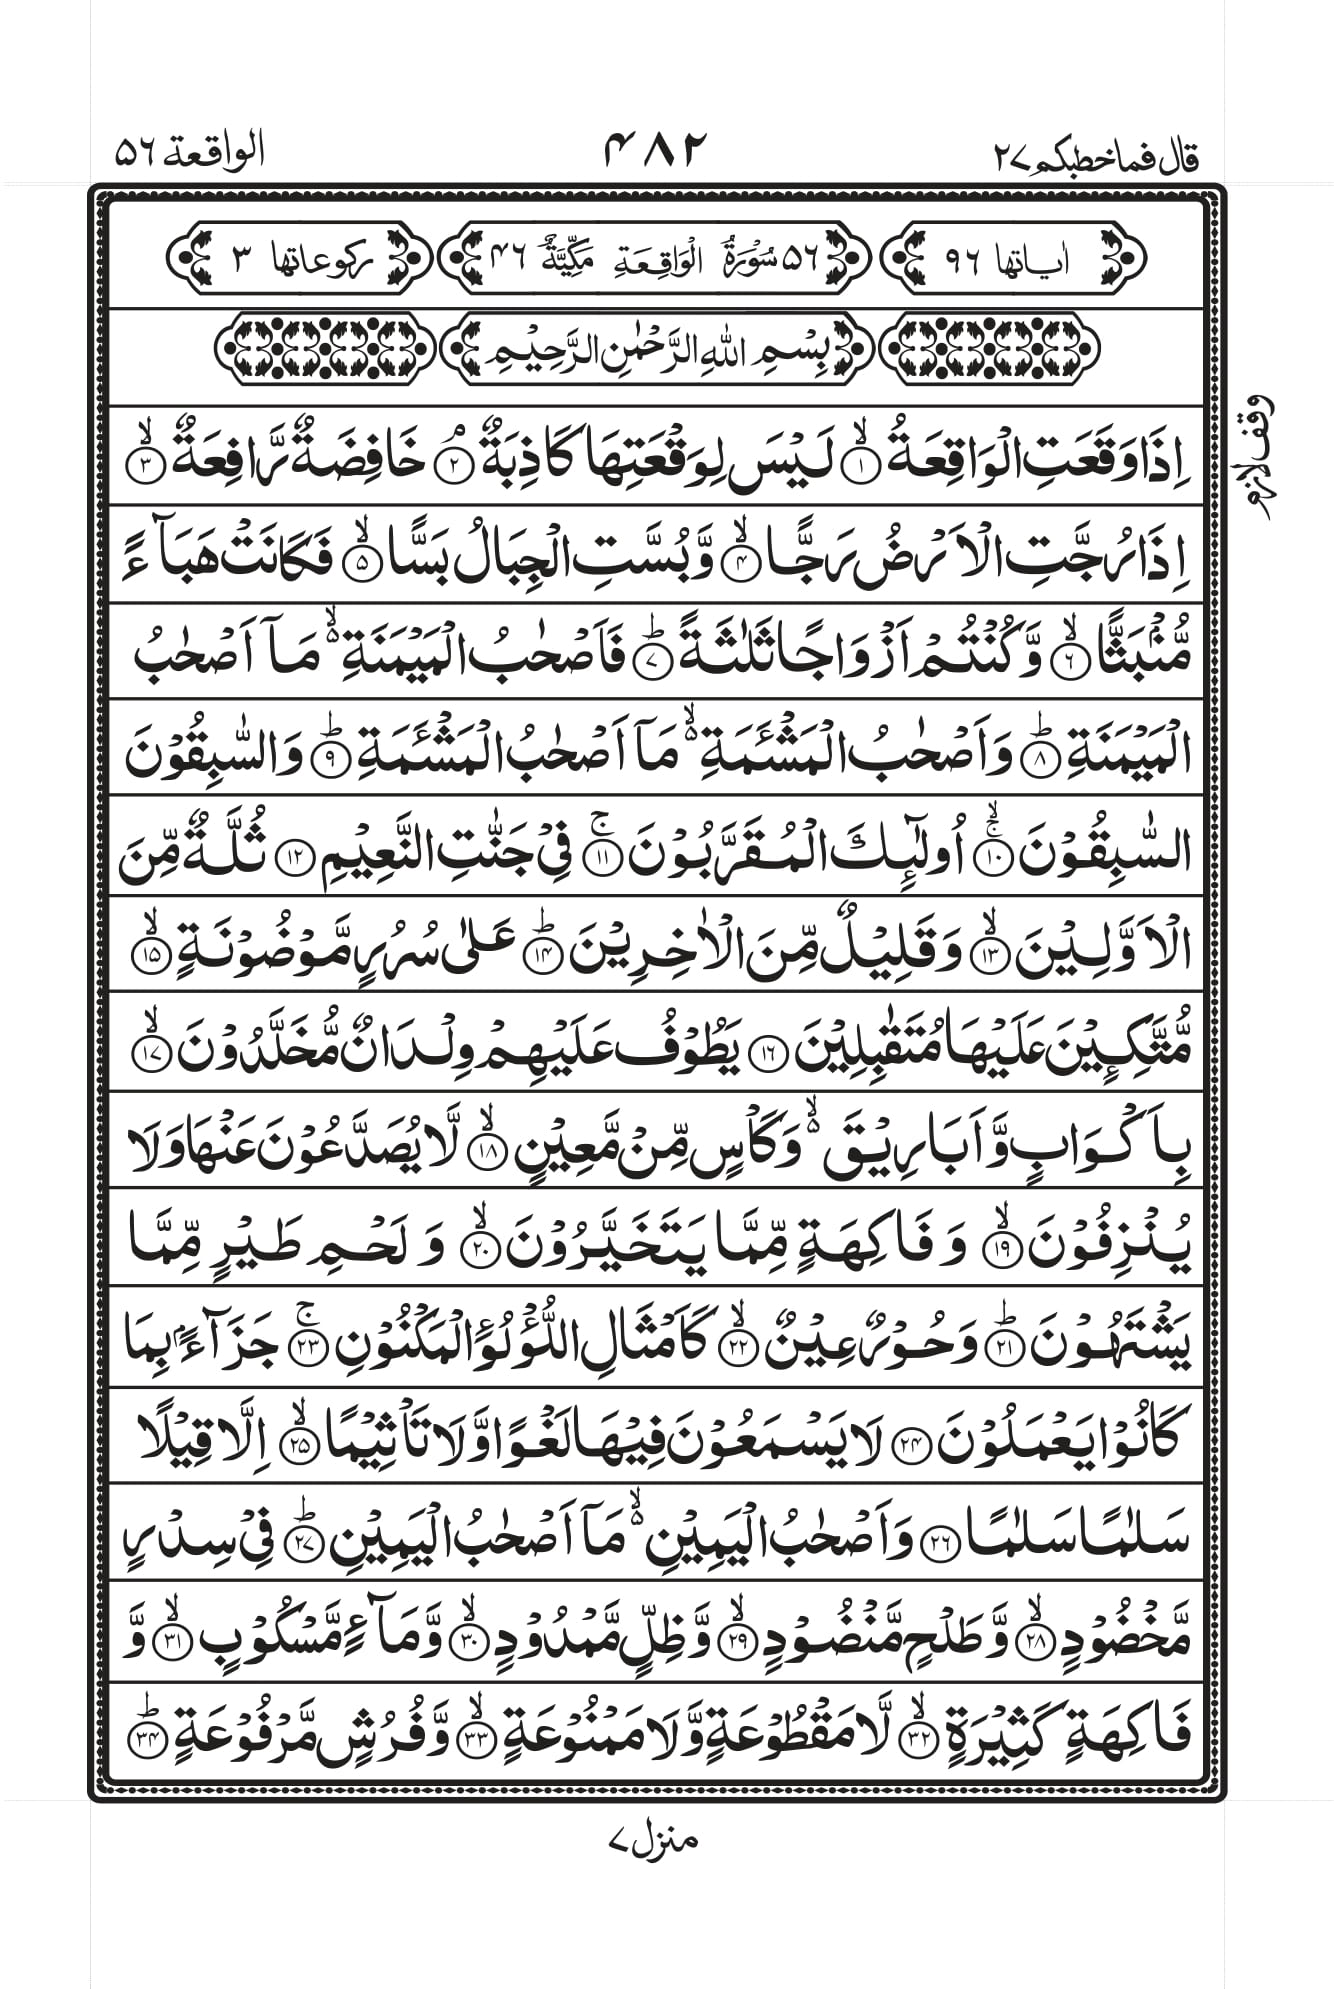 قال فماخطبكم ۲۷
۴۸۲
الواقعة ۵۶
اٰیاتها ۹۶
۵۶ سُوْرَةُ الْوَاقِعَةِ مَكِّیَّةٌ ۴۶
ركوعاتها ۳
بِسْمِ اللّٰهِ الرَّحْمٰنِ الرَّحِیْمِ
اِذَا وَقَعَتِ الْوَاقِعَةُ ۙ﴿۱﴾ لَیْسَ لِوَقْعَتِهَا كَاذِبَةٌ ۘ﴿۲﴾ خَافِضَةٌ رَّافِعَةٌ ۙ﴿۳﴾
وقف لازم
اِذَا رُجَّتِ الْاَرْضُ رَجًّا ۙ﴿۴﴾ وَّبُسَّتِ الْجِبَالُ بَسًّا ۙ﴿۵﴾ فَكَانَتْ هَبَآءً
مُّنْۢبَثًّا ۙ﴿۶﴾ وَّكُنْتُمْ اَزْوَاجًا ثَلٰثَةً ؕ﴿۷﴾ فَاَصْحٰبُ الْمَیْمَنَةِ ۙ۬ مَاۤ اَصْحٰبُ
الْمَیْمَنَةِ ؕ﴿۸﴾ وَاَصْحٰبُ الْمَشْـَٔمَةِ ۙ۬ مَاۤ اَصْحٰبُ الْمَشْـَٔمَةِ ؕ﴿۹﴾ وَالسّٰبِقُوْنَ
السّٰبِقُوْنَ ۚۙ﴿۱۰﴾ اُولٰٓئِكَ الْمُقَرَّبُوْنَ ۚ﴿۱۱﴾ فِیْ جَنّٰتِ النَّعِیْمِ ﴿۱۲﴾ ثُلَّةٌ مِّنَ
الْاَوَّلِیْنَ ۙ﴿۱۳﴾ وَقَلِیْلٌ مِّنَ الْاٰخِرِیْنَ ؕ﴿۱۴﴾ عَلٰی سُرُرٍ مَّوْضُوْنَةٍ ۙ﴿۱۵﴾
مُّتَّكِـِٕیْنَ عَلَیْهَا مُتَقٰبِلِیْنَ ﴿۱۶﴾ یَطُوْفُ عَلَیْهِمْ وِلْدَانٌ مُّخَلَّدُوْنَ ۙ﴿۱۷﴾
بِاَكْوَابٍ وَّاَبَارِیْقَ ۙ۬ وَكَاْسٍ مِّنْ مَّعِیْنٍ ۙ﴿۱۸﴾ لَّا یُصَدَّعُوْنَ عَنْهَا وَلَا
یُنْزِفُوْنَ ۙ﴿۱۹﴾ وَفَاكِهَةٍ مِّمَّا یَتَخَیَّرُوْنَ ۙ﴿۲۰﴾ وَلَحْمِ طَیْرٍ مِّمَّا
یَشْتَهُوْنَ ؕ﴿۲۱﴾ وَحُوْرٌ عِیْنٌ ۙ﴿۲۲﴾ كَاَمْثَالِ اللُّؤْلُؤِ الْمَكْنُوْنِ ۚ﴿۲۳﴾ جَزَآءًۢ بِمَا
كَانُوْا یَعْمَلُوْنَ ﴿۲۴﴾ لَا یَسْمَعُوْنَ فِیْهَا لَغْوًا وَّلَا تَاْثِیْمًا ۙ﴿۲۵﴾ اِلَّا قِیْلًا
سَلٰمًا سَلٰمًا ﴿۲۶﴾ وَاَصْحٰبُ الْیَمِیْنِ ۙ۬ مَاۤ اَصْحٰبُ الْیَمِیْنِ ؕ﴿۲۷﴾ فِیْ سِدْرٍ
مَّخْضُوْدٍ ۙ﴿۲۸﴾ وَّطَلْحٍ مَّنْضُوْدٍ ۙ﴿۲۹﴾ وَّظِلٍّ مَّمْدُوْدٍ ۙ﴿۳۰﴾ وَّمَآءٍ مَّسْكُوْبٍ ۙ﴿۳۱﴾ وَّ
فَاكِهَةٍ كَثِیْرَةٍ ۙ﴿۳۲﴾ لَّا مَقْطُوْعَةٍ وَّلَا مَمْنُوْعَةٍ ۙ﴿۳۳﴾ وَّفُرُشٍ مَّرْفُوْعَةٍ ؕ﴿۳۴﴾
منزل ۷